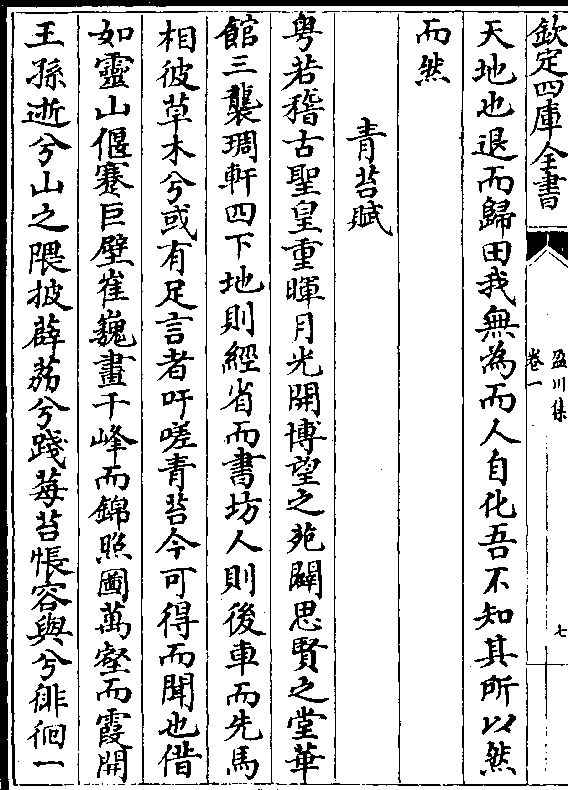 欽定四庫全書
盈川集
卷一
七
天地也退而歸田我無為而人自化吾不知其所以然
而然
青苔賦
粤若稽古聖皇重暉月光開博望之苑闢思賢之堂華
館三襲琱軒四下地則經省而書坊人則後車而先馬
相彼草木兮或有足言者吁嗟青苔今可得而聞也借
如靈山偃蹇巨壁崔巍畫千峰而錦照圖萬壑而霞開
王孫逝兮山之隈披薜荔兮踐莓苔悵容與兮徘徊一